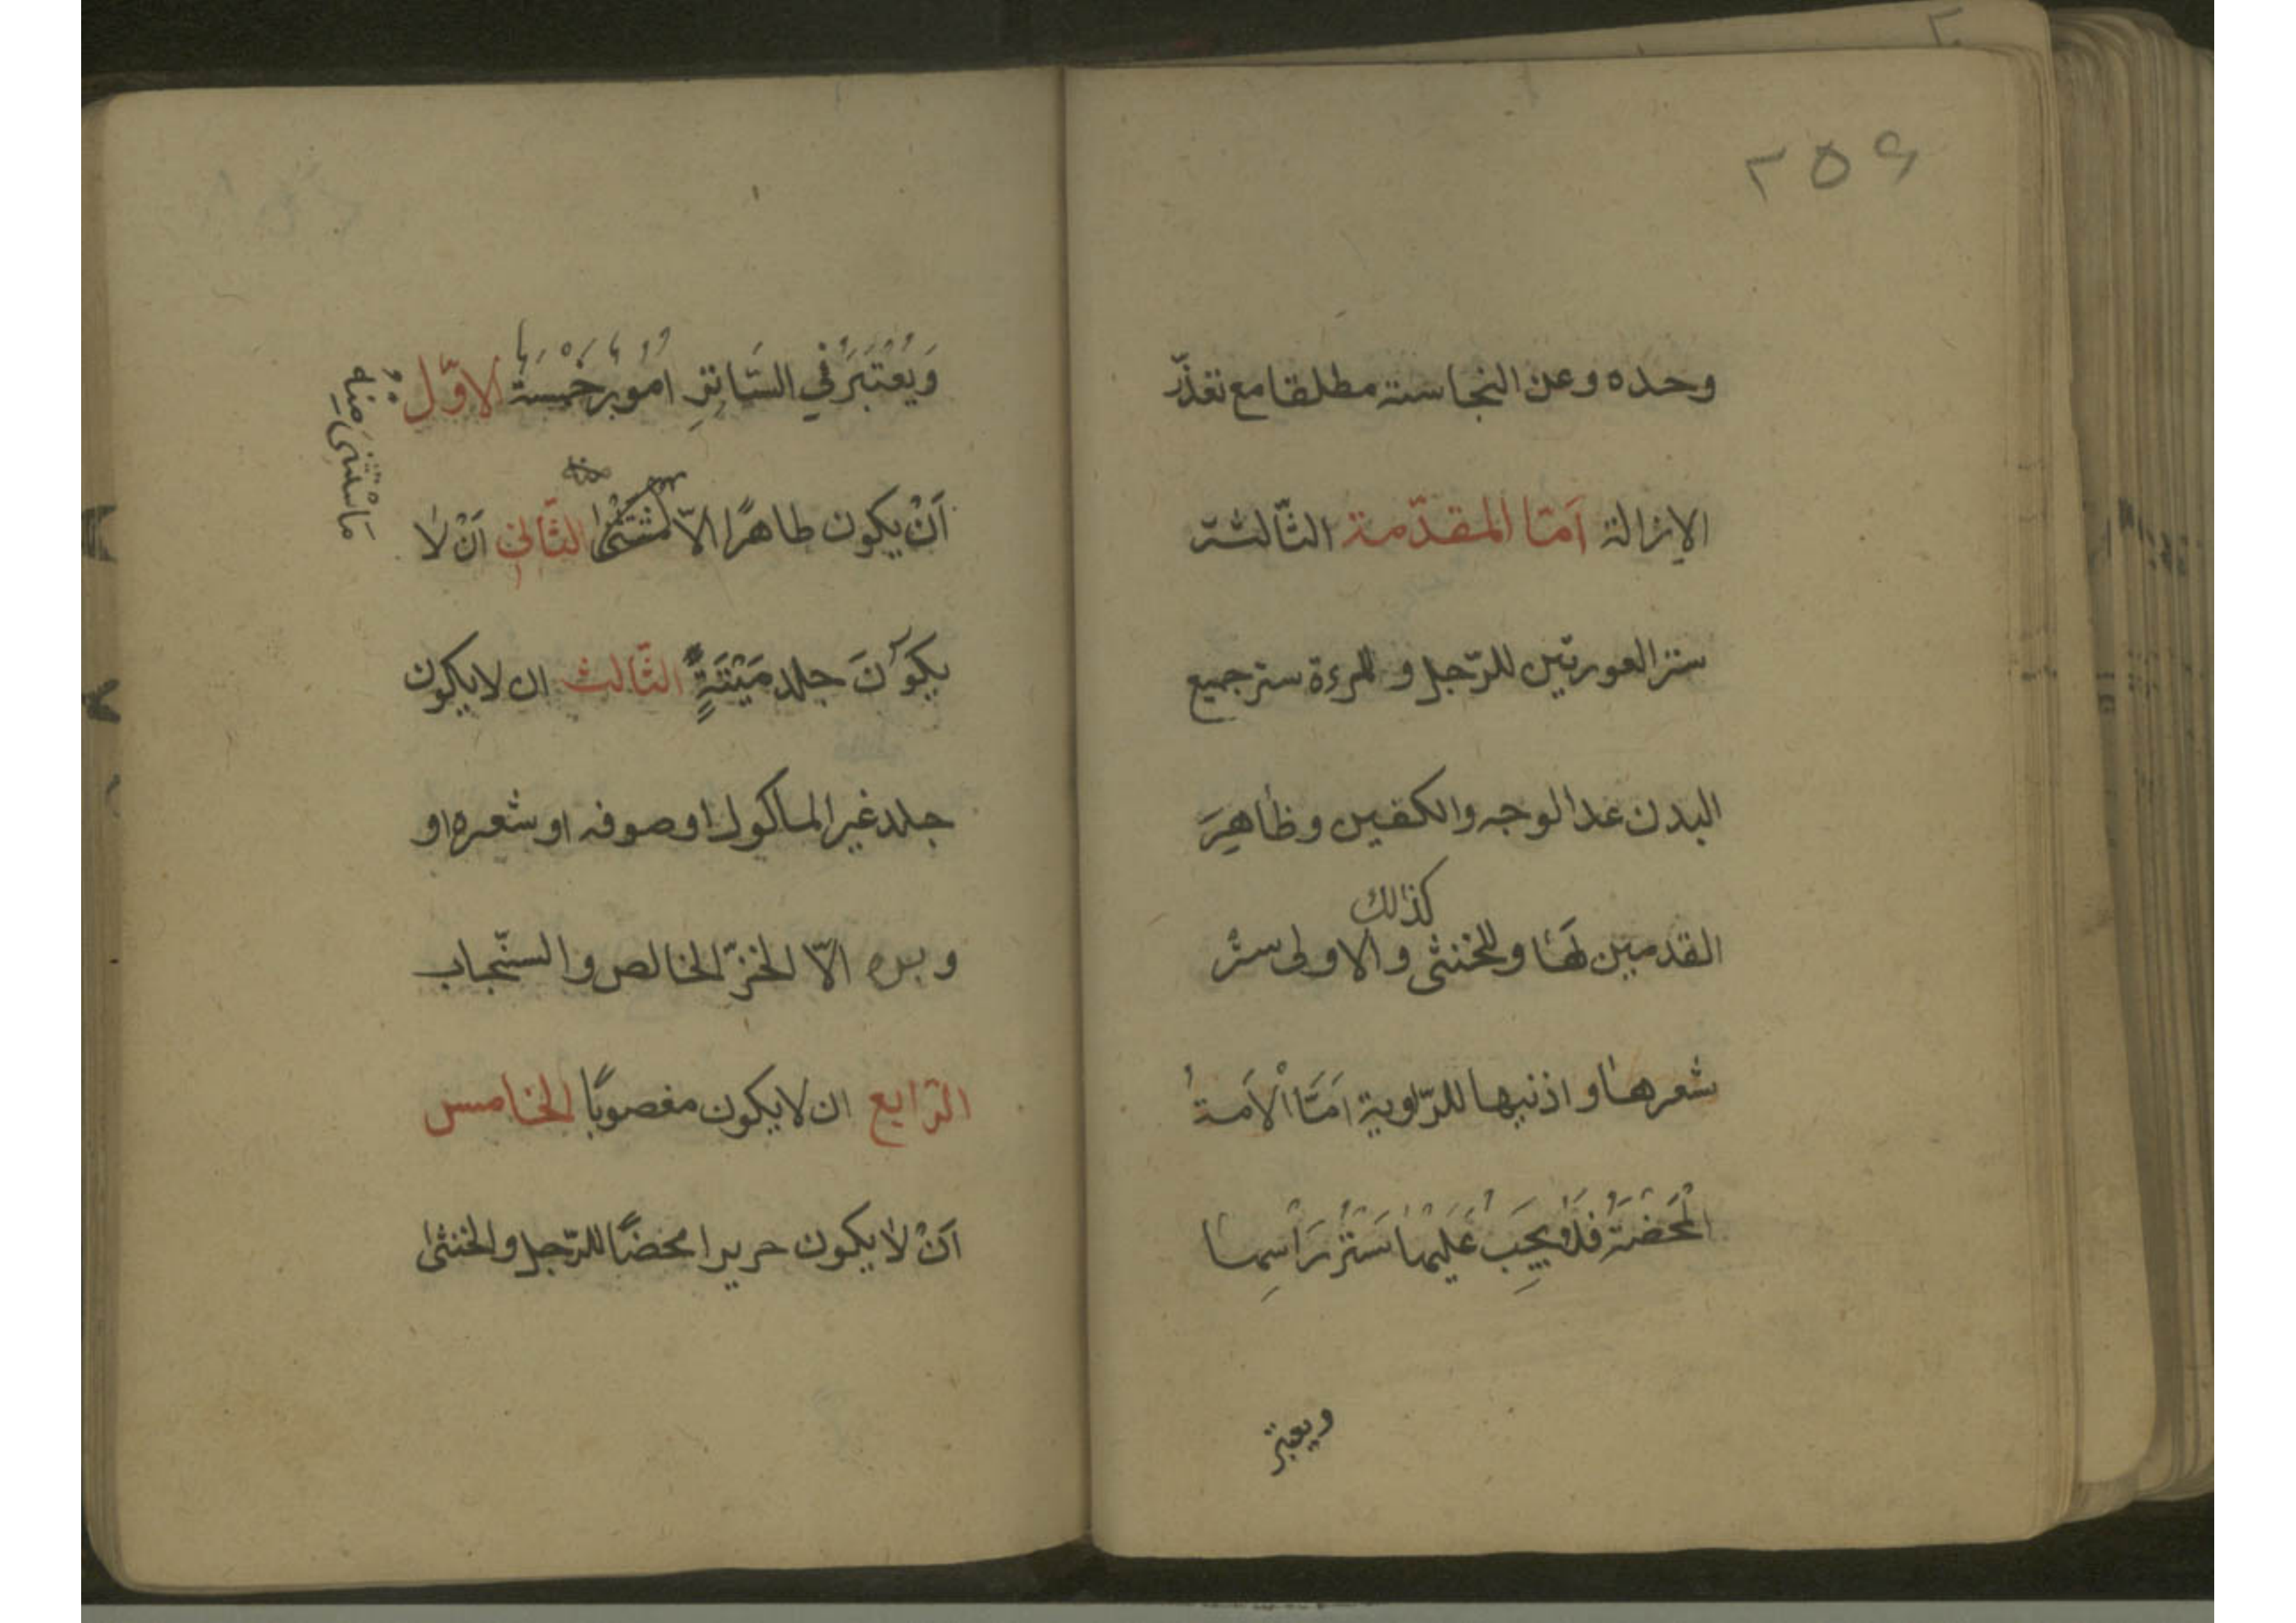 ٢٥٦
وحده وعن النجاسة مطلقا مع تعذّر
الإزالة آمّا المقدّمة الثّالثة
ستر العورتين للرّجل و للمرءة ستر جميع
البدن عدا الوجه والكفين وظاهِرَ
كذلك
القدمين لهَا وللخنثى والاولى سَتْر
شعرها و اذنيها للرّواية امَّا الْاَمَةُ
الْمَحْضَةُ فَلا يَجِبُ عَلَيها سَتْرُ رَأسِها
ويعتبر
وَيُعْتَبَرُ في السَّاتِرِ امُورٌ خَمْسَة الاوّل
اَنْ يكون طاهرًا الاّ الثّاني اَنْ لا
مَا سْتثنى مِنْهُ
يكُونَ جلد مَيْتَةٍ الثّالث ان لا يكون
جلد غير المأكول او صوفه او شعره او
و بره الّا الخزّ الخالص والسنّجاب
الرّابع ان لا يكون مغصوبًا الخامس
اَنْ لا يكون حريرا محضًا للرّجل والخنثى